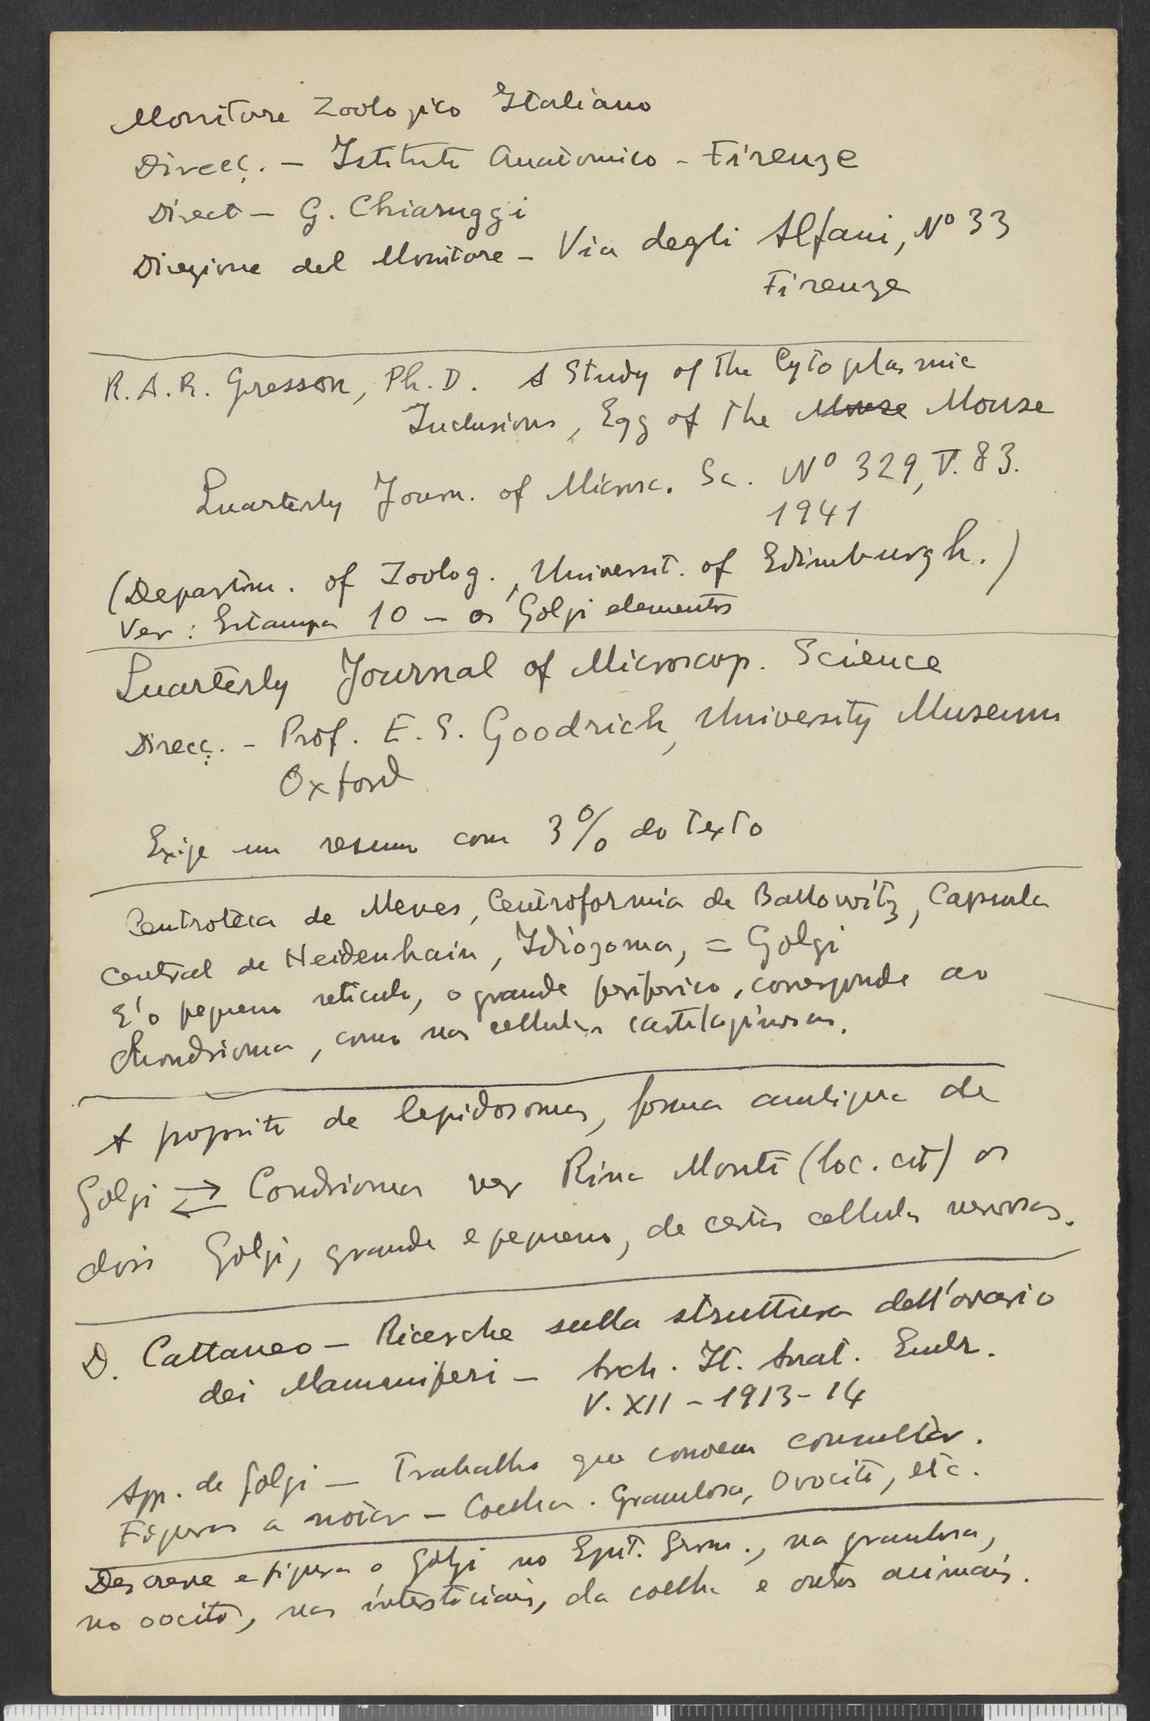 Monitore Zoologico Italiano
Direcç. - Istituto Anatomico - Firenze
Direct - G. Chiaruggi
Direzione del Monitore - Via degli Alfani, Nº 33
Firenze
R. A. R. Gresson, Ph. D. A Study of the Cytoplasmic
Inclusions, Egg of the Mouse Mouse
Quarterly Journ. of Microsc. Sc. Nº 329, V. 83.
1941
(Departm. of Zoolog., Universit. of Edimburgh.)
Ver: Estampa 10 - os Golgi elementos
Quarterly Journal of Microscop. Science
Direcç. - Prof. E. S. Goodrich, University Museum
Oxford
Exije um resumo com 3% do texto
Centroteca de Meves, Centroformia de Ballowitz, Capsula
central de Heidenhain, Idiozoma, = Golgi
E' o pequeno reticulo, o grande periferico, corresponde ao
Chondrioma, como nas cellulas cartilaginosas.
A proposito de lepidosomas, forma ambigua de
Golgi ⇄ Condriomas ver Rina Monti (loc. cit) os
dois Golgi, grande e pequeno, de certas cellulas nervosas.
D. Cattaneo - Ricerche sulla struttura dell'ovario
dei Mammiferi - Arch. It. Anat. Embr.
V. XII - 1913-14
App. de Golgi - Trabalho que convem consultar.
Figuras a notar - Coelha. Granulosa, Ovocito, etc.
Descreve e figura o Golgi no Epit. Germ., na granulosa,
no oocito, nas intersticiais, da coelha e outros animais.